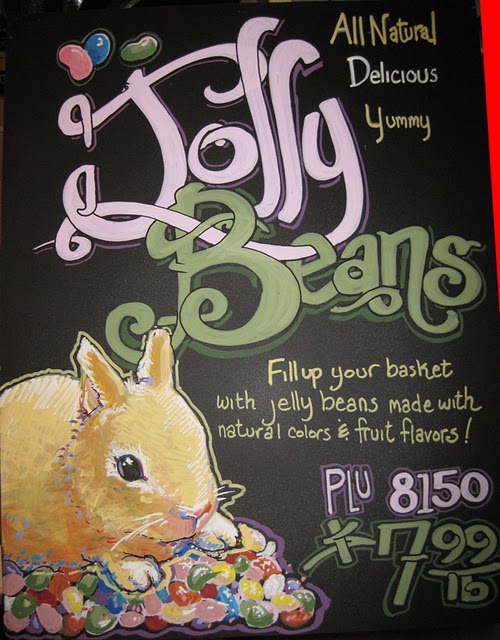 All Natural
Delicious
Yummy
Jolly
Beans
Fill up your basket
with jelly beans made with
natural colors & fruit flavors!
PLU 8150
$7.99
lb